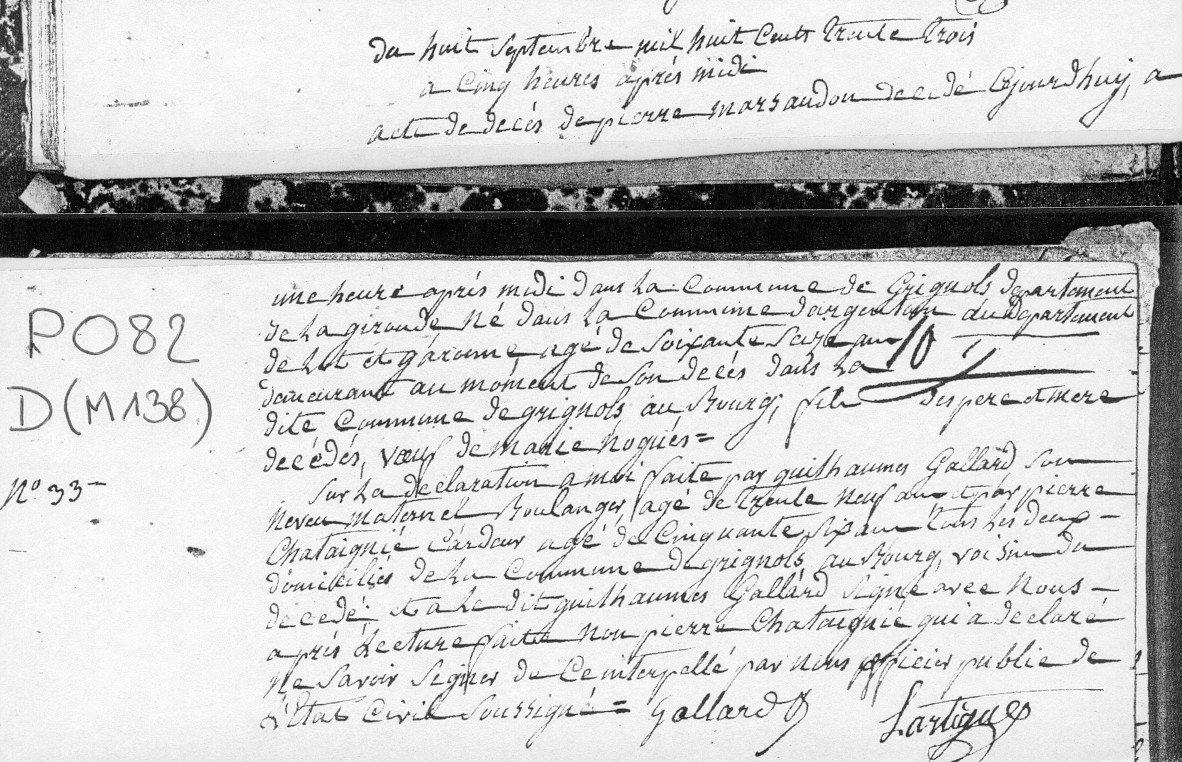 du huit Septembre mil huit Cent trente trois
a Cinq heures après midi
acte de décés de pierre marsaudou decedé Cejourdhuy, a
une heure après midi dans La Commune de Grignols departement
de La gironde, Né dans La Commune dargenton du Departement
de Lot et garonne, agé de Soixante Seize an
demeurant au moment de Son décés dans La
dite Commune de grignols au Bourg, fils des pere et mere
décédés, vœuf de marie Noguès =
PO82
D (M138)
N° 33 -
Sur La declaration a moi faite par guilhaumes Gallard, Son
Neveu maternel Boulanger, agé de trente neuf an et par pierre
Chataignié Cardeur agé de Cinquante Six an tous Les deux -
domiciliés de La Commune de grignols au Bourg, voisin du
décedé, et a Le dit guilhaumes Gallard Signé avec Nous -
après Lecture faite Non pierre Chataignié qui à declaré
Ne Savoir Signer de Ce interpellé par nous officier public de
L'Etat Civil Soussigné = Gallard
Lartigue